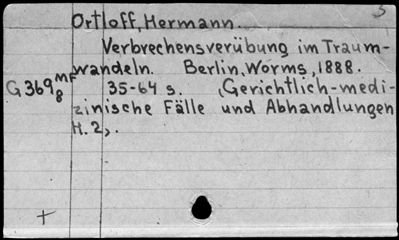 5
Ortloff, Hermann.
Verbrechensverübung im Traum-
wandeln. Berlin, Worms, 1888.
G369 MF 8
35-64 s. (Gerichtlich-medi-
zinische Fälle und Abhandlungen
H.2).